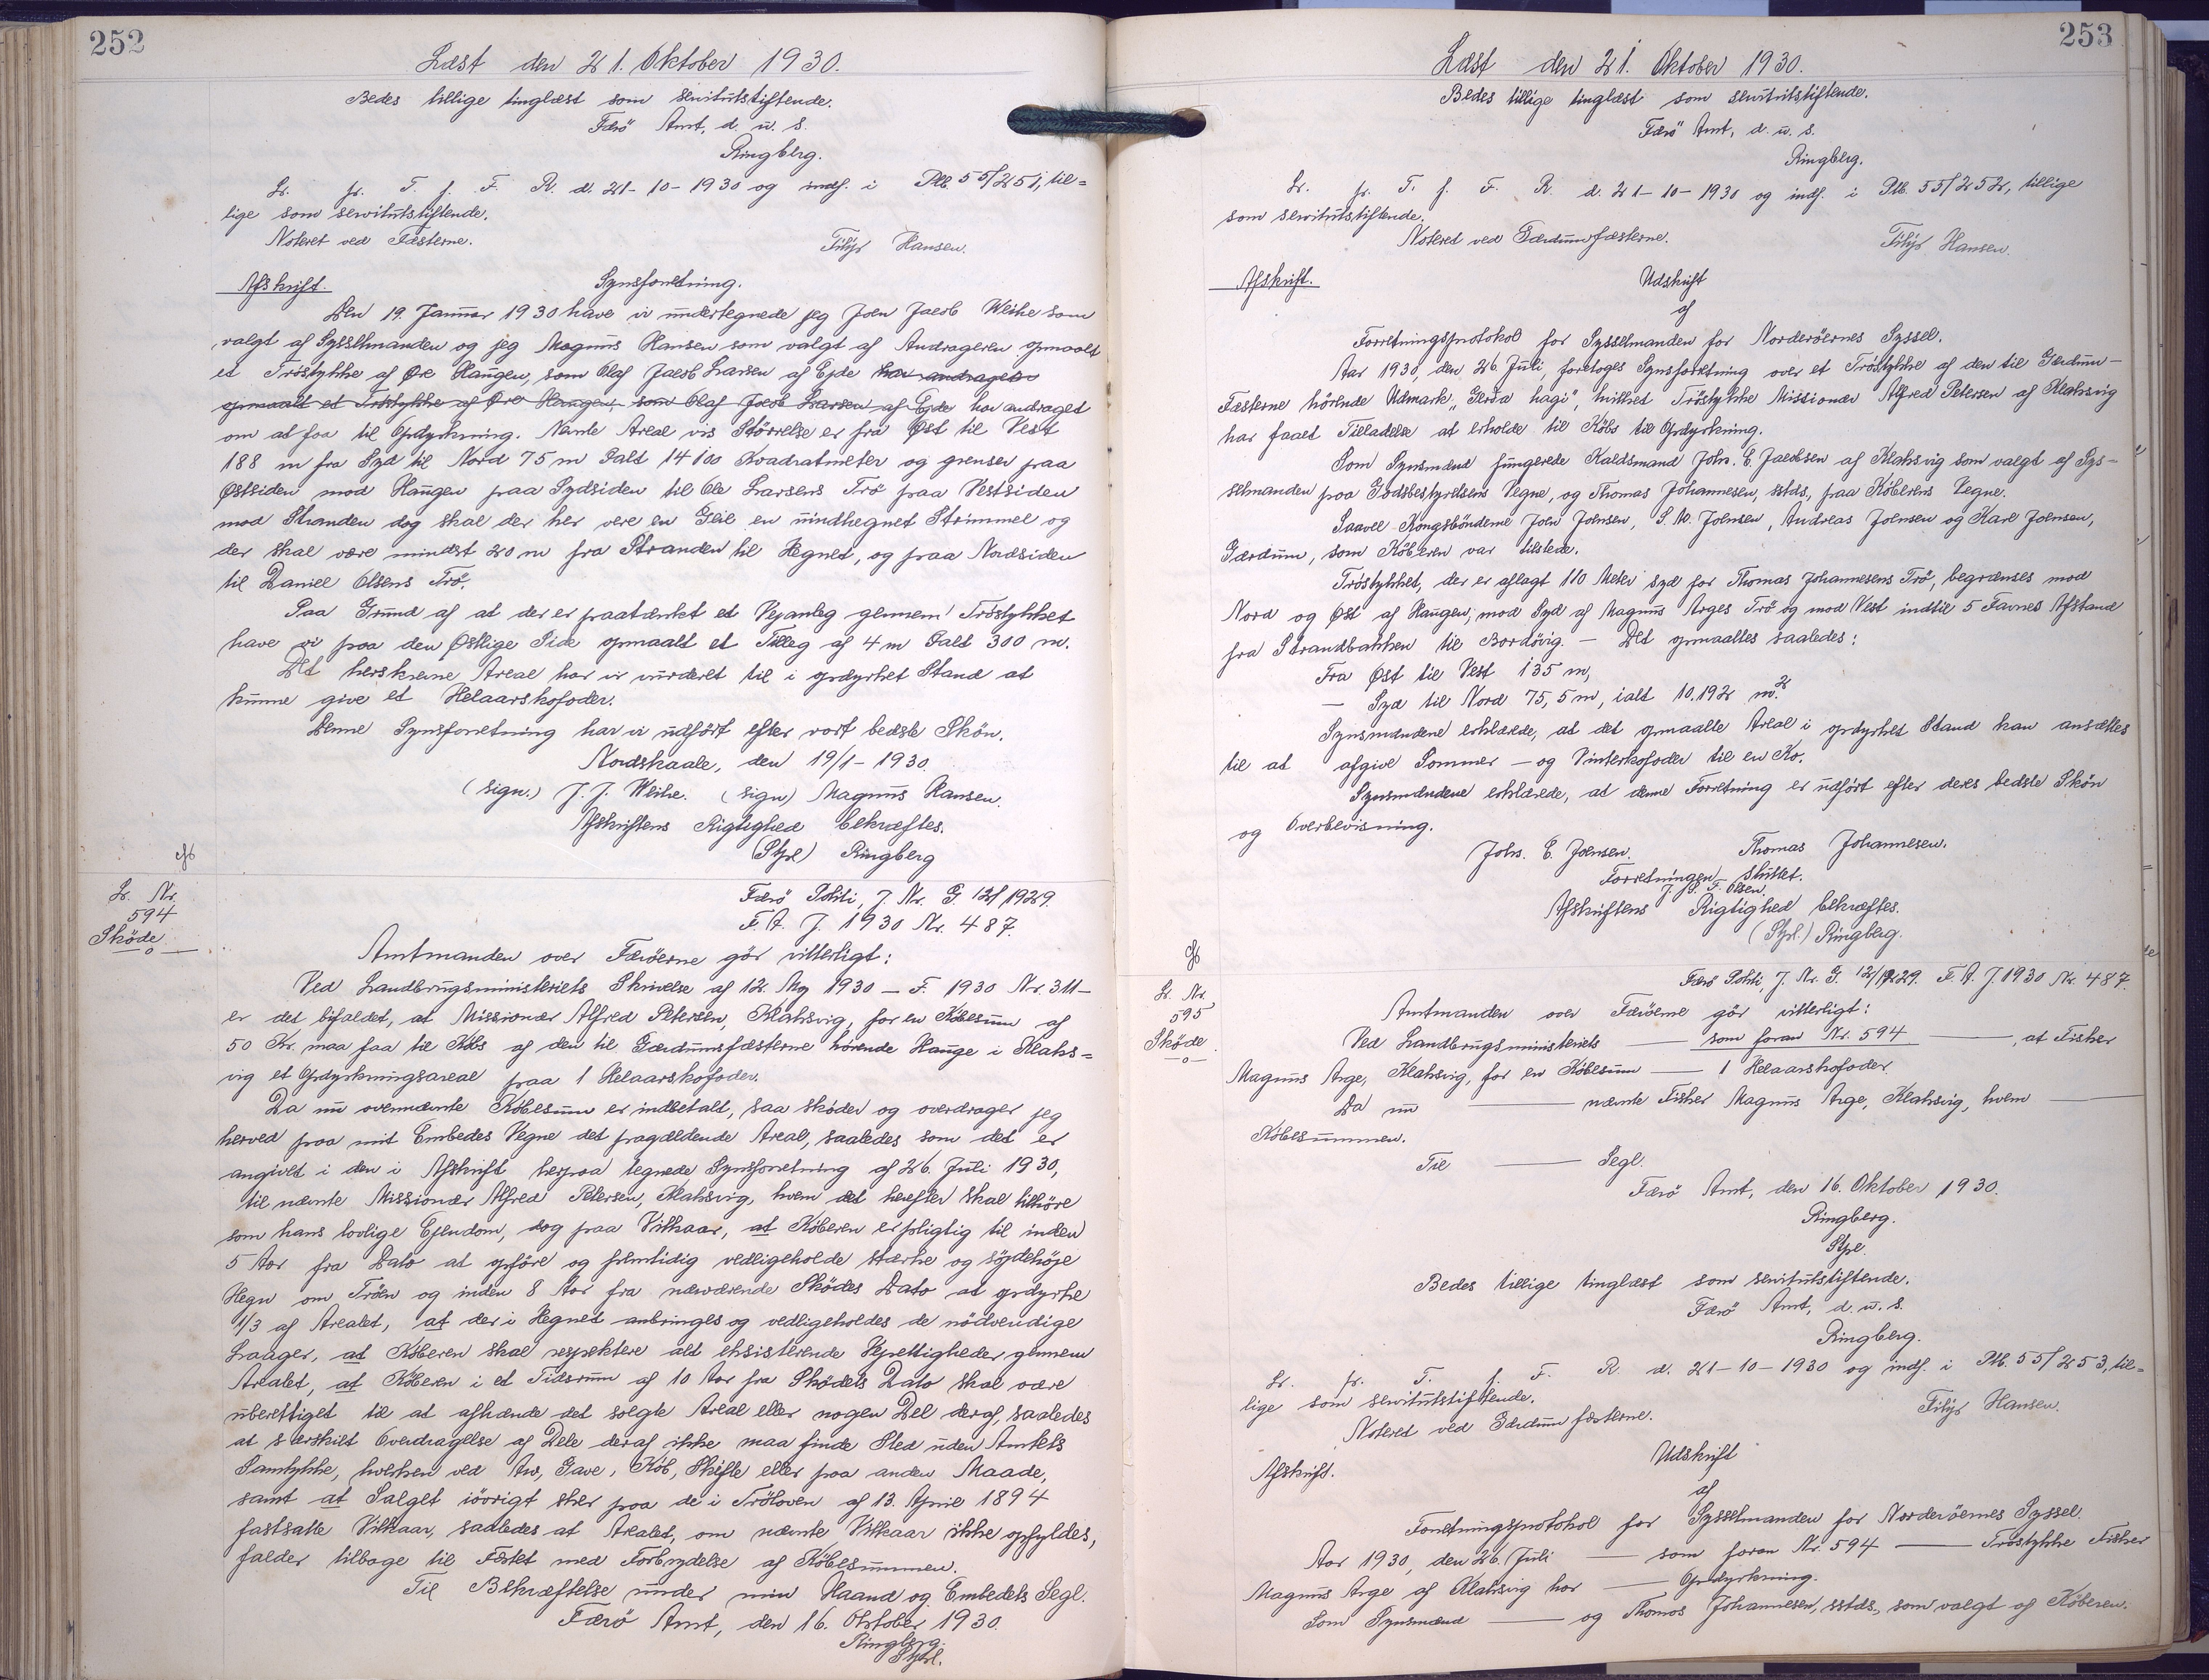 252
Læst den 21. Oktober 1930.
Bedes tillige tinglæst som servitutstiftende.
Færö Amt, d. u. s.
Ringberg.
Lr. fr. T. f. F. R. d. 21-10-1930 og indf. i Ptb. 55/251, til=
lige som servitutstiftende.
Noteret ved Fæsterne.
Filip Hansen.
Afskrift. Synsforretning.
Den 19. Januar 1930 have vi undertegnede jeg Joen Jacob Weihe som
valgt af Sysselmanden og jeg Magnus Hansen som valgt af Andrageren opmaalt
et Tröstykke af Øre Haugen, som Olaf Jacob Larsen af Ejde har andraget
opmaalt et Tröstykke af Øre Haugen, som Olaf Jacob Larsen af Ejde har andraget
om at faa til Opdyrkning. Nævnte Areal vis Störrelse er fra Øst til Vest
188 m fra Syd til Nord 75 m Ialt 14100 Kvadratmeter og grenser paa
Østsiden mod Haugen paa Sydsiden til Ole Larsens Trö paa Vestsiden
mod Stranden dog skal der her vere en Geil en uindhegnet Strimmel og
der skal være mindst 20 m fra Stranden til Hegnet, og paa Nordsiden
til Daniel Olsens Trö.
Paa Grund af at der er paatænkt et Vejanleg gennem Tröstykket
have vi paa den Østlige Side opmaalt et Tilleg af 4 m Ialt 300 m.
Det herskrevne Areal har vi vurderet til i opdyrket Stand at
kunne give et Helaarskofoder.
Denne Synsforretning har vi udfört efter vort bedste Skön.
Nordskaale, den 19/1-1930.
(sign.) J. J. Weihe. (sign) Magnus Hansen.
Afskriftens Rigtighed bekræftes.
(Stpl) Ringberg
Lr. Nr.
594
Sköde
Færö Politi, J. Nr. G. 12/1929.
F. A. J. 1930 Nr. 487.
Amtmanden over Færöerne gör vitterligt:
Ved Landbrugsministeriets Skrivelse af 12. Maj 1930 - F. 1930 Nr. 311-
er det bifaldet, at Missionær Alfred Petersen, Klaksvig, for en Købesum af
50 Kr. maa faa til Købs af den til Gærdumsfæsterne hørende Hauge i Klaks=
vig et Opdyrkningsareal paa 1 Helaarskofoder.
Da nu ovennævnte Købesum er indbetalt, saa sköder og overdrager jeg
herved paa mit Embedes Vegne det pagældende Areal, saaledes som det er
angivet i den i Afskrift herpaa tegnede Synsforretning af 26. Juli 1930,
til nævnte Missionær Alfred Petersen, Klaksvig, hvem det herefter skal tilhöre
som hans lovlige Ejendom, dog paa Vilkaar, at Köberen er pligtig til inden
5 Aar fra Dato at opföre og fremtidig vedligeholde stærke og söjdehöje
Hegn om Tröen og inden 8 Aar fra nærværende Sködes Dato at opdyrke
1/3 af Arealet, at der i Hegnet anbringes og vedligeholdes de nödvendige
Laager, at Köberen skal respektere alt eksisterende Vejrettigheder gennem
Arealet, at Köberen i et Tidsrum af 10 Aar fra Sködets Dato skal være
uberettiget til at afhænde det solgte Areal eller nogen Del deraf, saaledes
at særskilt Overdragelse af Dele deraf ikke maa finde Sted uden Amtets
Samtykke, hverken ved Arv, Gave, Köb, Skifte eller paa anden Maade,
samt at Salget iövrigt sker paa de i Tröloven af 13. April 1894
fastsatte Vilkaar, saaledes at Arealet, om nævnte Vilkaar ikke opfyldes,
falder tilbage til Fæstet med Forbrydelse af Købesummen.
Til Bekræftelse under min Haand og Embedets Segl.
Færö Amt, den 16. Oktober 1930.
Ringberg.
Stpl.
253
Læst den 21. Oktober 1930.
Bedes tillige tinglæst som servitutstiftende.
Færö Amt, d. u. s.
Ringberg.
Lr. fr. T. f. F. R. d. 21-10-1930 og indf. i Ptb. 55/252, tillige
som servitutstiftende.
Noteret ved Gærdumfæsterne.
Filip Hansen.
Afskrift. Udskrift
af
Forretningsprotokol for Sysselmanden for Norderöernes Syssel.
Aar 1930, den 26. Juli, foretoges Synsforretning over et Tröstykke af den til Gærdum-
Fæsterne hörende Udmark, "Gerða hagi", hvilket Tröstykke Missionær Alfred Petersen af Klaksvig
har faaet Tilladelse at erholde til Købs til Opdyrkning.
Som Synsmænd fungerede Kaldsmand Johs. E. Jacobsen af Klaksvig som valgt af Sys-
selmanden paa Godsbestyrelsens Vegne, og Thomas Johannesen, sstds., paa Köberens Vegne.
Saavel Kongsbönderne Joen Joensen, S. M. Joensen, Andreas Joensen og Karl Joensen,
Gærdum, som Köberen var tilstede.
Tröstykket, der er aflagt 110 Meter syd for Thomas Johannesens Trö, begrænses mod
Nord og Øst af Haugen, mod Syd af Magnus Arges Trö og mod Vest indtil 5 Favnes Afstand
fra Strandbakken til Bordövig. - Det opmaaltes saaledes:
Fra Øst til Vest 135 m,
- Syd til Nord 75,5 m, ialt 10.192 m.²
Synsmændene erklærede, at det opmaalte Areal i opdyrket Stand kan ansættes
til at afgive Sommer - og Vinterkofoder til en Ko.
Synsmændene erklærede, at denne Forretning er udfört efter deres bedste Skön
og Overbevisning.
Johs. E. Joensen. Thomas Johannesen.
Forretningen sluttet.
J. F. Olsen.
Afskriftens Rigtighed bekræftes.
(Stpl.) Ringberg.
Lr. Nr.
595
Sköde
Færö Politi, J. Nr. G. 12/1929. F. A. J. 1930 Nr. 487.
Amtmanden over Færöerne gör vitterligt:
Ved Landbrugsministeriets — som foran Nr. 594 —, at Fisker
Magnus Arge, Klaksvig, for en Købesum — 1 Helaarskofoder.
Da nu — nævnte Fisker Magnus Arge, Klaksvig, hvem —
Købesummen.
Til — Segl.
Færö Amt, den 16. Oktober 1930.
Ringberg.
Stpl.
Bedes tillige tinglæst som servitutstiftende.
Færö Amt, d. u. s.
Ringberg.
Lr. fr. T. f. F. R. d. 21-10-1930 og indf. i Ptb. 55/253, til=
lige som servitutstiftende.
Noteret ved Gærdumfæsterne.
Filip Hansen.
Afskrift. Udskrift
af
Forretningsprotokol for Sysselmanden for Norderöernes Syssel.
Aar 1930, den 26. Juli — som foran Nr. 594 — Tröstykke Fisker
Magnus Arge af Klaksvig har — Opdyrkning.
Som Synsmænd — og Thomas Johannesen, sstds., som valgt af Köberen.